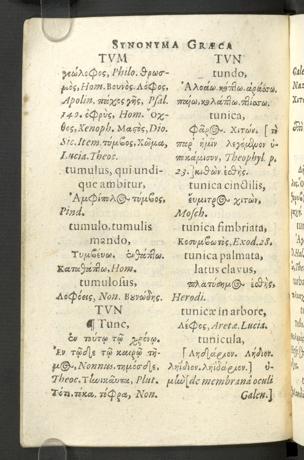 SYNONYMA GRÆCA
TVM
γεώλοφος, Philo. θρωσ-
μὸς, Hom. Βουνὸς. Λόφος,
Apolin. πάγος γῆς, Psal.
142. ὀφρὺς, Hom. Ὄχ-
θος, Xenoph. Μαστὸς, Dio.
Sic. Item τύμβος, Χῶμα,
Lucia. Theoc.
tumulus, qui undi-
que ambitur,
Ἀμφίπολος τύμβος,
Pind.
tumulo. tumulis
mando,
Τυμβεύω.
Καταθάπτω, Hom.
tumulosus,
Λοφόεις, Non. Βουνώδης.
TVN
¶ Tunc,
Ἐν τούτῳ τῷ χρόνῳ.
Ἐν τῷδε τῷ καιρῷ τῆ-
μος, Nonnus. τημόσδε,
Theoc. Τηνικαῦτα, Plut.
Τότε. τόφρα, Non.
TVN
tundo,
Ἀλοάω. κόπτω. ἀράσσω.
παίω. κολάπτω. πτίσσω.
tunica,
φᾶρος. Χιτών. [τὸ
παρ' ἡμῖν λεγόμενον ὑ-
ποκάμισον, Theophyl. p.
23.] ἐσθής.
tunica cinctilis,
εὔμιτρος χιτών,
Mosch.
tunica fimbriata,
Κοσυμβωτὸς, Exod. 28.
tunica palmata,
latus clavus,
πλατύσημος ἐσθὴς,
Herodi.
tunicæ in arbore,
Λέφος, Aretæ. Lucia.
tunicula,
[Λῃδάριον. Λήδιον.
ληίδιον. ληιδάριον.] ὑ-
μὴν [de membrana oculi
Galen.]